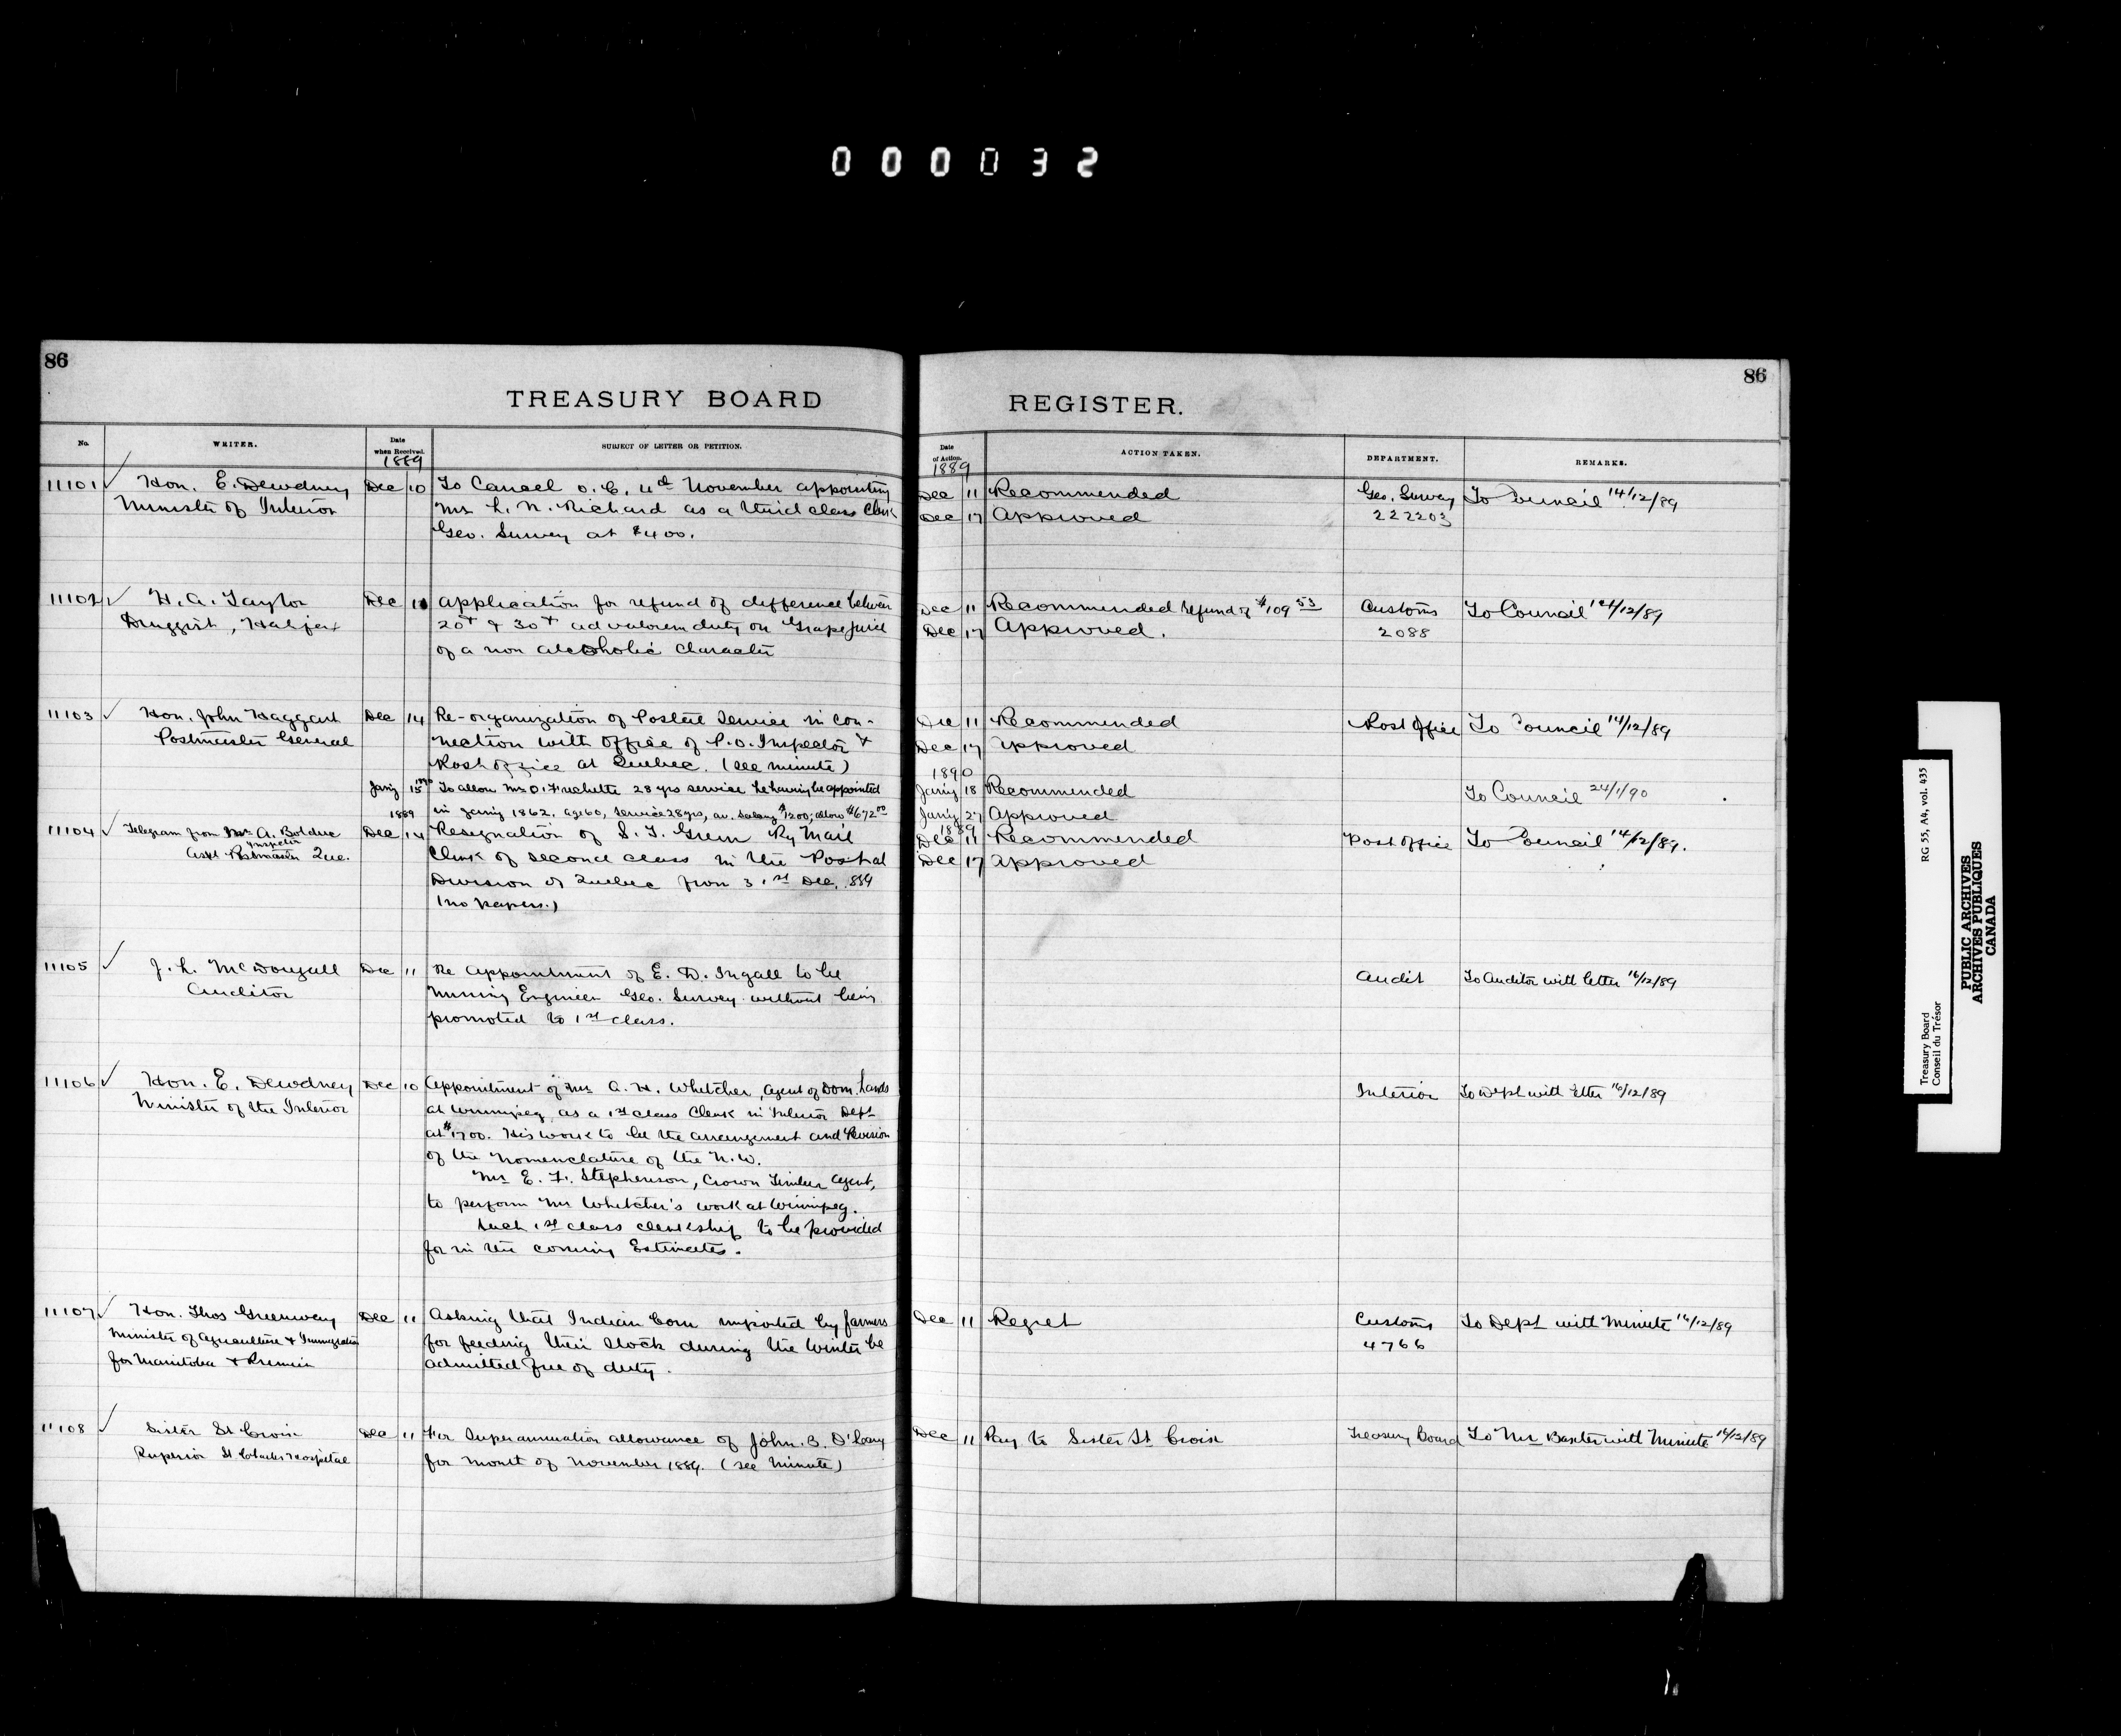 000032
86
TREASURY BOARD
No.
WRITER.
Date
when Received.
SUBJECT OF LETTER OR PETITION.
1889
11101
Hon. E. Dewdney
Minister of Interior
Dec 10
To Cancel O.C. November appointing
Mr L. N. Richard as a third class Clerk
Geo. Survey at $400.
11102
H. A. Taylor
Druggist, Halifax
Dec
Application for refund of difference between
20% & 30% ad valorem duty on Grape juice
of a non alcoholic character
11103
Hon. John Haggart
Postmaster General
Dec 14
Re-organization of Postal Service in con-
nection with office of P.O. Inspector &
Post office at Quebec. (see minute)
Jany 15 1890
To allow Mr O. Frechette 28 yrs service he having been appointed
in Jany 1862. age 60, Service 28 yrs, av. Salary $1200; allow $672.00
1889
11104
Telegram from Mr A. Bolduc
Inspector
Asst Postmaster Que.
Dec 14
Resignation of S. T. Green Ry Mail
Clerk of second class in the Postal
Division of Quebec from 31st Dec. 889
(no papers.)
11105
J. L. McDougall
Auditor
Dec 11
Re Appointment of E. D. Ingall to be
Mining Engineer Geo. Survey without being
promoted to 1st class.
11106
Hon. E. Dewdney
Minister of the Interior
Dec 10
Appointment of Mr A. H. Whitcher, Agent of Dom. Lands
at Winnipeg as a 1st class Clerk in Interior Dept
at $1700. His work to be the arrangement and Revision
of the Nomenclature of the N.W.
Mr E. F. Stephenson, Crown Timber Agent,
to perform Mr Whitcher's work at Winnipeg.
Such 1st class clerkship to be provided
for in the coming Estimates.
11107
Hon. Thos Greenway
Minister of Agriculture & Immigration
for Manitoba & Premier
Dec 11
Asking that Indian Corn imported by farmers
for feeding their stock during the Winter be
admitted free of duty.
11108
Sister St Croix
Superior St Charles Hospital
Dec 11
For Superannuation allowance of John B. O'Leary
for month of November 1889. (see Minute)
86
REGISTER.
Date
of Action.
ACTION TAKEN.
DEPARTMENT.
REMARKS.
1889
Dec 11 Recommended
Geo. Survey
To Council 14/12/89
Dec 17 Approved
222203
Dec 11 Recommended refund of $109.53
Customs
To Council 14/12/89
Dec 17 Approved.
2088
Dec 11 Recommended
Post Office
To Council 14/12/89
Dec 17 Approved
1890
Jany 18 Recommended
To Council 24/1/90
Jany 27 Approved
1889
Dec 11 Recommended
Post Office
To Council 14/12/89.
Dec 17 Approved
Audit
To Auditor with letter 16/12/89
Interior
To Dept with letter 16/12/89
Dec 11 Regret
Customs
To Dept with Minute 16/12/89
4766
Dec 11 Pay to Sister St Croix
Treasury Board
To Mr Baxter with Minute 16/12/89
Treasury Board
Conseil du Trésor
RG 55, A4, vol. 435
PUBLIC ARCHIVES
ARCHIVES PUBLIQUES
CANADA